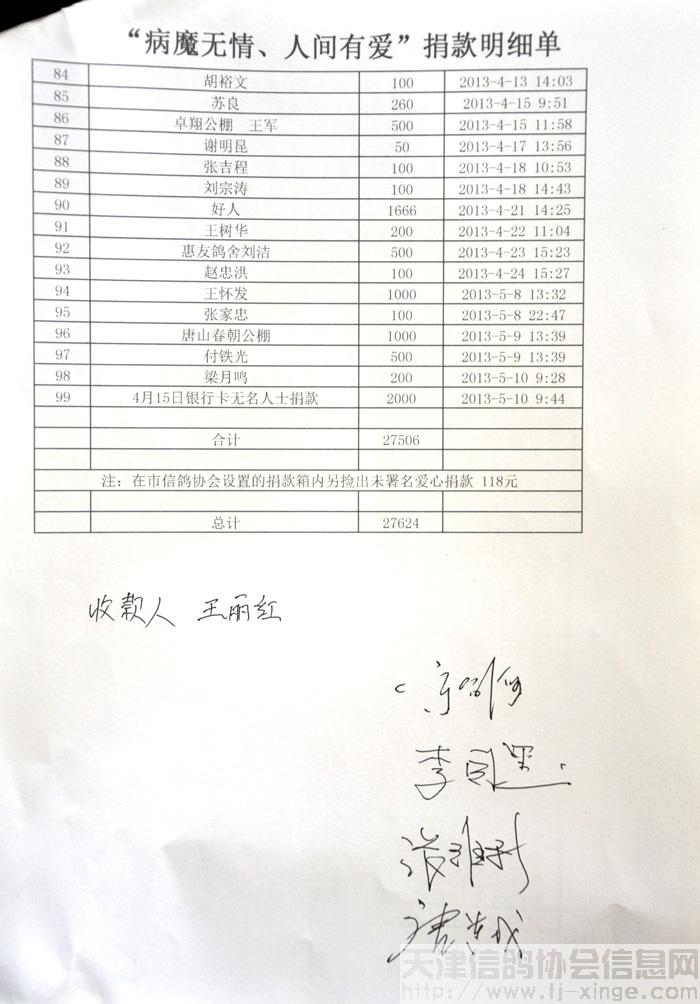 “病魔无情、人间有爱”捐款明细单
84 胡裕文 100 2013-4-13 14:03
85 苏良 260 2013-4-15 9:51
86 卓翔公棚 王军 500 2013-4-15 11:58
87 谢明昆 50 2013-4-17 13:56
88 张吉程 100 2013-4-18 10:53
89 刘宗涛 100 2013-4-18 14:43
90 好人 1666 2013-4-21 14:25
91 王树华 200 2013-4-22 11:04
92 惠友鸽舍刘洁 500 2013-4-23 15:23
93 赵忠洪 100 2013-4-24 15:27
94 王怀发 1000 2013-5-8 13:32
95 张家忠 100 2013-5-8 22:47
96 唐山春朝公棚 1000 2013-5-9 13:39
97 付铁光 500 2013-5-9 13:39
98 梁月鸣 200 2013-5-10 9:28
99 4月15日银行卡无名人士捐款 2000 2013-5-10 9:44
合计 27506
注：在市信鸽协会设置的捐款箱内另捡出未署名爱心捐款 118元
总计 27624
收款人 王丽红
李
天津信鸽协会信息网
www.tj-xinge.com